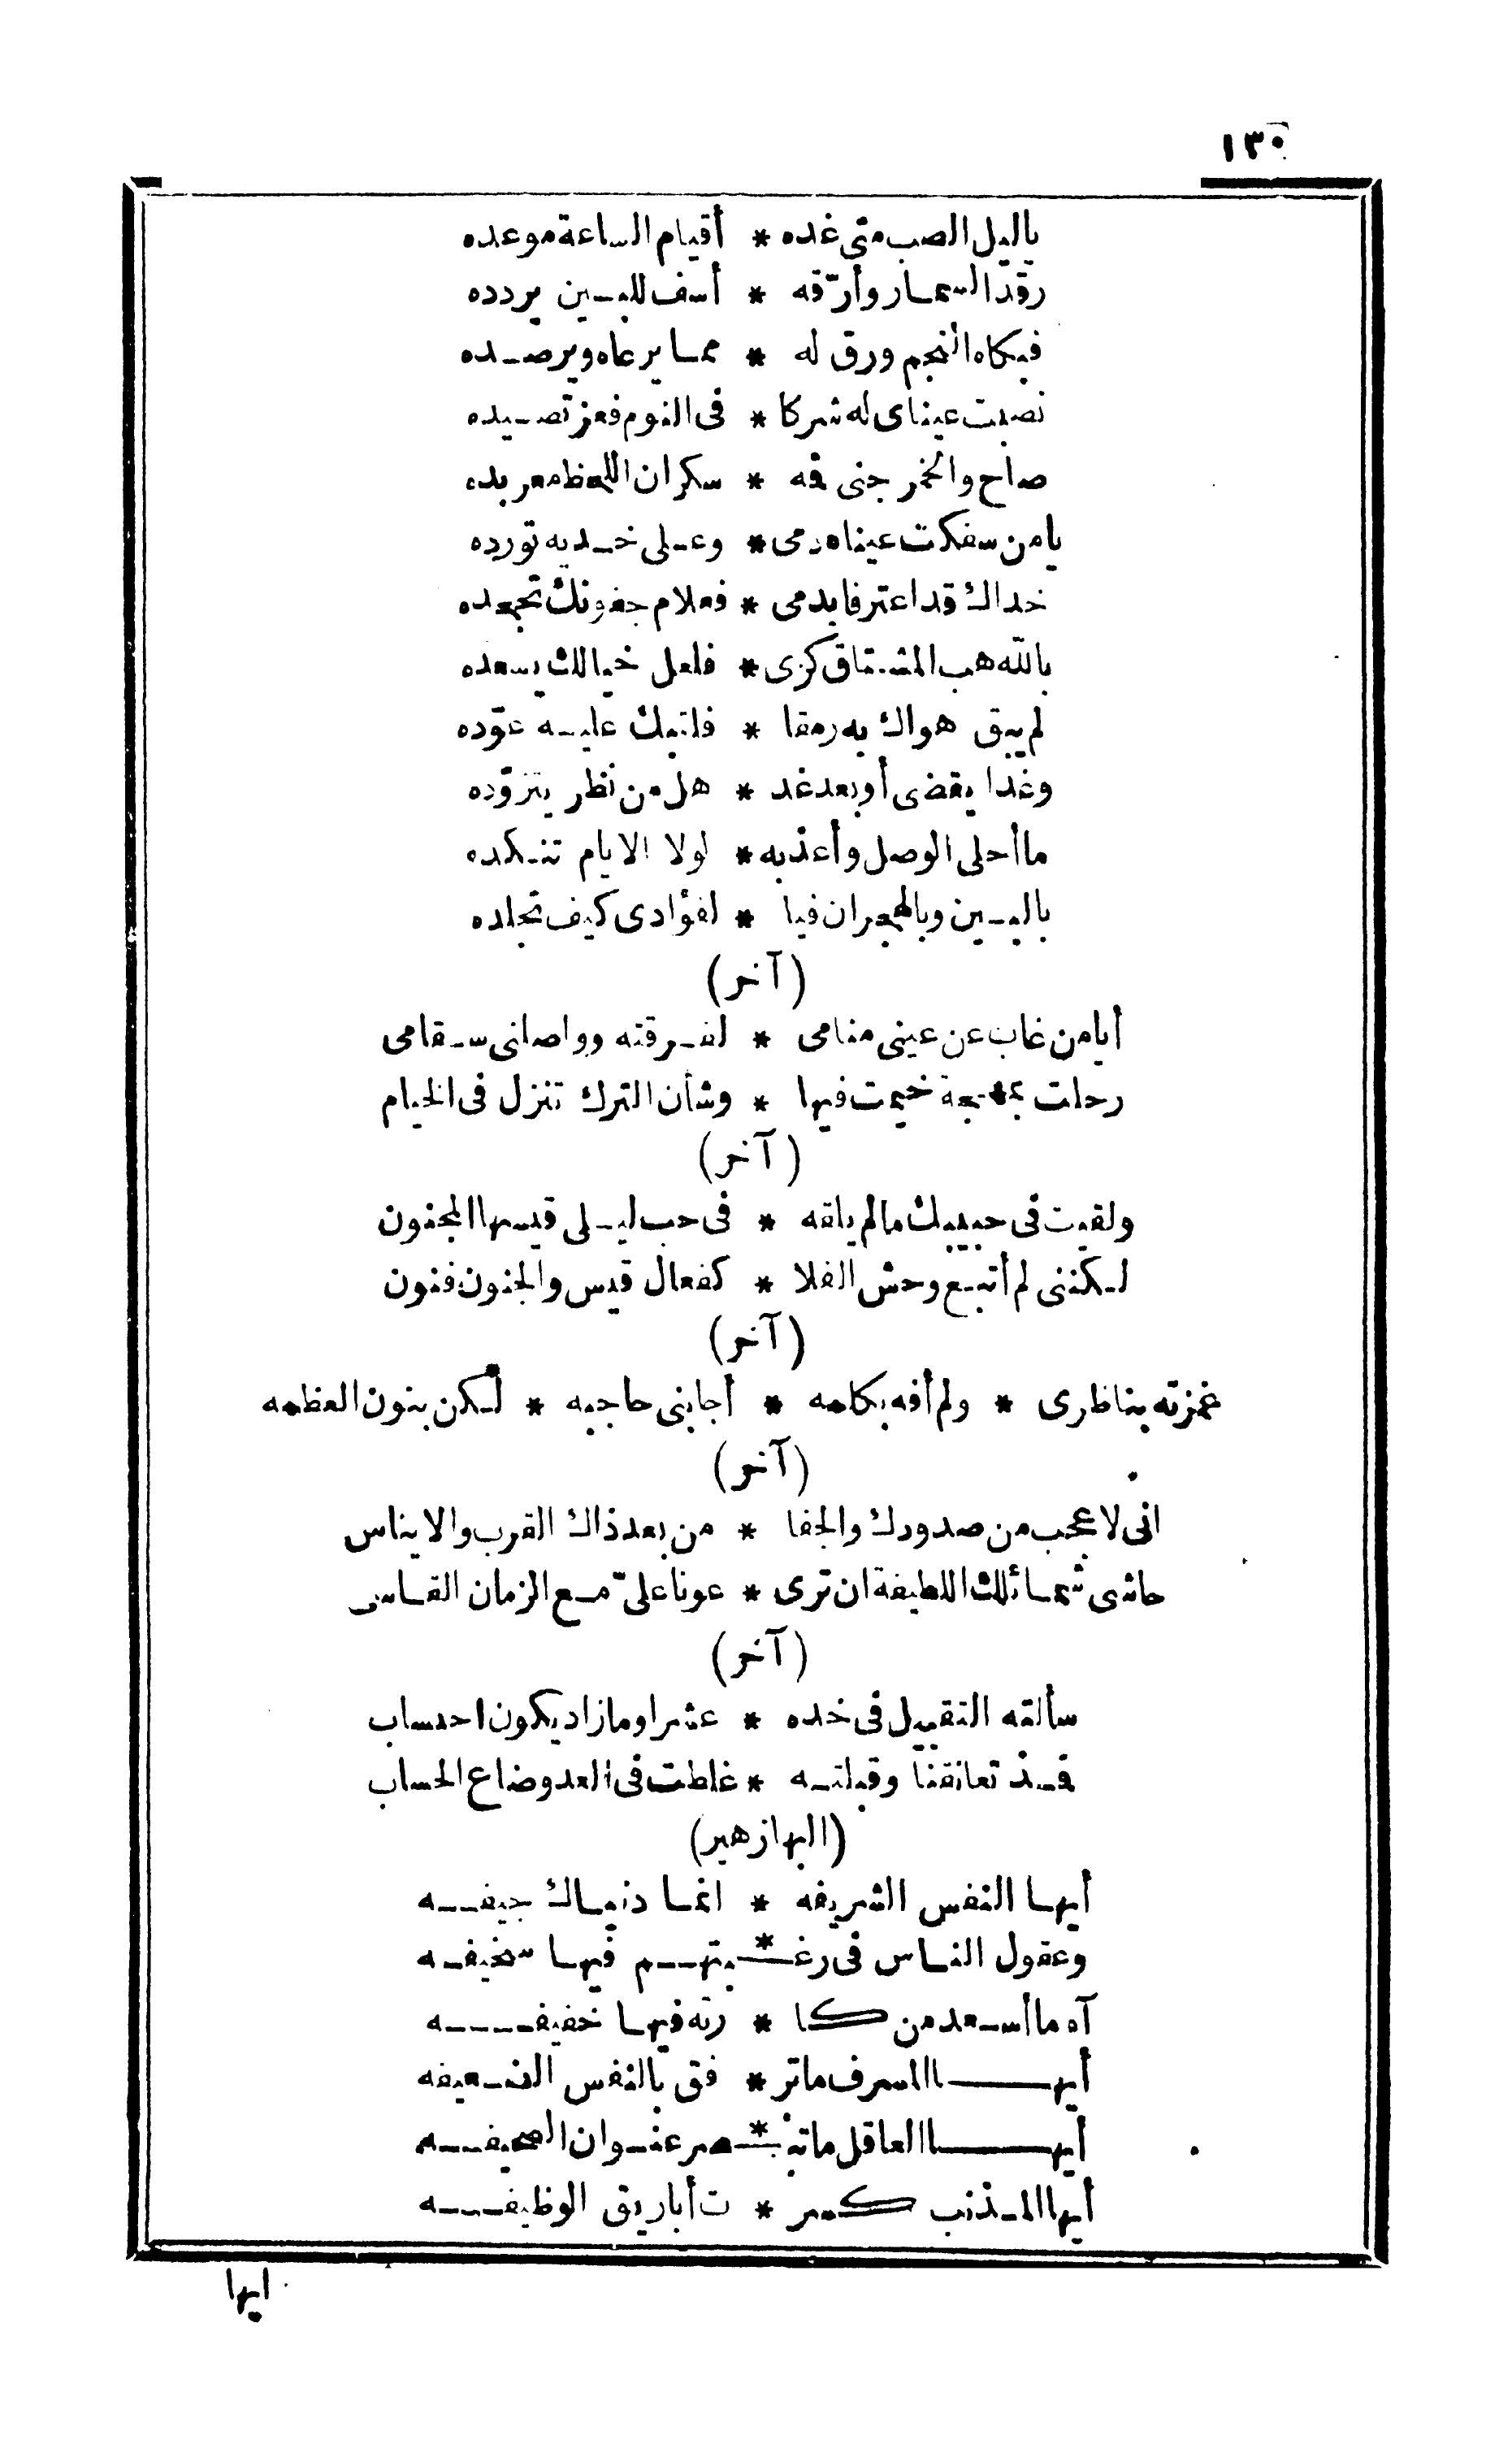 ١٣٠
ياليل الصب متى غده * أقيام الساعة موعده
رقد السمار وأرّقه * أسف للبين يردده
فبكاه النجم ورق له * مما يرعاه ويرصده
نصبت عيناى له شركا * فى النوم فعز تصيده
صاح والخمر جنى فه * سكران اللحظ معربده
يامن سفكت عيناه دمى * وعلى خديه تورده
خداك قد اعترفا بدمى * فعلام جفونك تجحده
بالله هب المشتاق كرى * فلعل خيالك يسعده
لم يبق هواك به رمقا * فلتبك عليه عوّده
وغدا يقضى أو بعد غد * هل من نظر يتزوّده
ماأحلى الوصل وأعذبه * لولا الايام تنكده
بالبين وبالهجران فيا * لفؤادى كيف تجلده
(آخر)
أيامن غاب عن عينى منامى * لفرقته وواصلنى سقامى
رحلت بمهجة خيمت فيها * وشأن الترك تنزل فى الخيام
(آخر)
ولقيت فى حبيبك مالم يلقه * فى حب ليلى قيسها المجنون
لكننى لم أتبع وحش الفلا * كفعال قيس والجنون فنون
(آخر)
غمزته بناظرى * ولم أفه بكلمه * أجابنى حاجبه * لكن بنون العظمه
(آخر)
انى لاعجب من صدودك والجفا * من بعد ذاك القرب والايناس
حاشى شمائلك اللطيفة ان ترى * عونا علىّ مع الزمان القاسى
(آخر)
سألته التقبيل فى خده * عشرا ومازاد يكون احتساب
قد تعانقنا وقبلته * غلطت فى العد وضاع الحساب
(البهازهير)
أيها النفس الشريفه * انما دنياك جيفه
وعقول الناس فى رغـ * ـبتهم فيها سخيفه
آه ماأسعد من كا * رته فيها خفيفه
أيها المسرف ماتر * فق بالنفس الضعيفه
أيها العاقل ماتبـ * ـصر عنوان الصحيفه
أيها المذنب كسر * ت أباريق الوظيفه
ايها